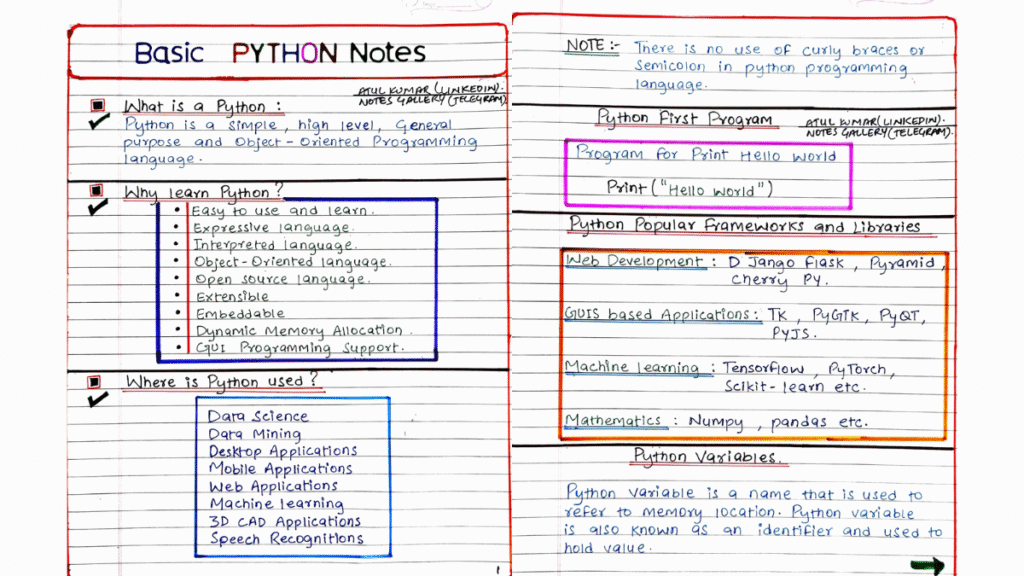 Basic PYTHON Notes
ATUL KUMAR (LINKEDIN).
NOTES GALLERY (TELEGRAM)
What is a Python :
Python is a simple, high level, General
purpose and Object-Oriented Programming
language.
Why learn Python?
• Easy to use and learn.
• Expressive language.
• Interpreted language.
• Object-Oriented language.
• Open source language.
• Extensible
• Embeddable
• Dynamic Memory Allocation.
• GUI Programming Support.
Where is Python used?
Data Science
Data Mining
Desktop Applications
Mobile Applications
Web Applications
Machine learning
3D CAD Applications
Speech Recognitions
1
NOTE :- There is no use of curly braces or
Semicolon in python programming
language.
Python First Program
ATUL KUMAR (LINKEDIN).
NOTES GALLERY (TELEGRAM).
Program for Print Hello World
Print ("Hello World")
Python Popular Frameworks and Libraries
Web Development : D Jango flask, Pyramid,
Cherry PY.
GUIS based Applications : TK, PyGTK, PyQT,
PYJS.
Machine learning : Tensorflow, PyTorch,
Scikit-learn etc.
Mathematics : Numpy, pandas etc.
Python Variables.
Python Variable is a name that is used to
refer to memory location. Python variable
is also known as an identifier and used to
hold value.